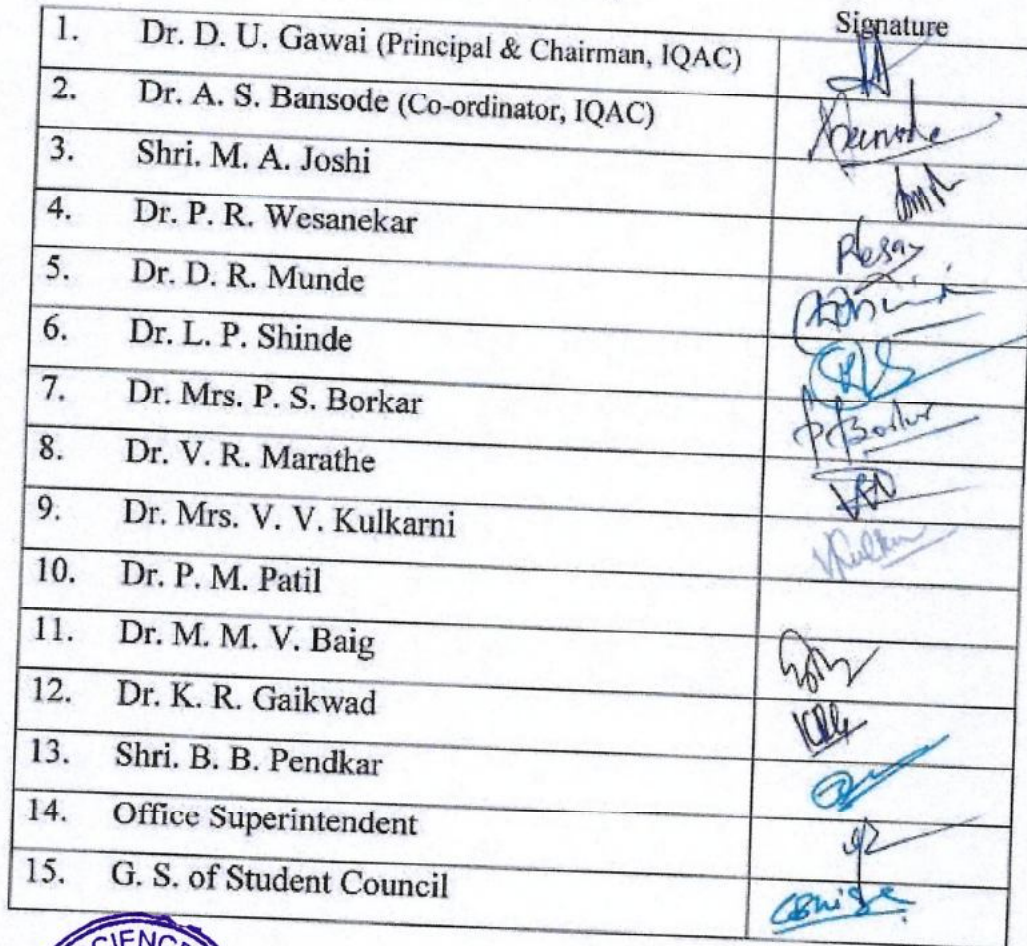 Signature
1. Dr. D. U. Gawai (Principal & Chairman, IQAC)
2. Dr. A. S. Bansode (Co-ordinator, IQAC)
3. Shri. M. A. Joshi
4. Dr. P. R. Wesanekar
5. Dr. D. R. Munde
6. Dr. L. P. Shinde
7. Dr. Mrs. P. S. Borkar
8. Dr. V. R. Marathe
9. Dr. Mrs. V. V. Kulkarni
10. Dr. P. M. Patil
11. Dr. M. M. V. Baig
12. Dr. K. R. Gaikwad
13. Shri. B. B. Pendkar
14. Office Superintendent
15. G. S. of Student Council